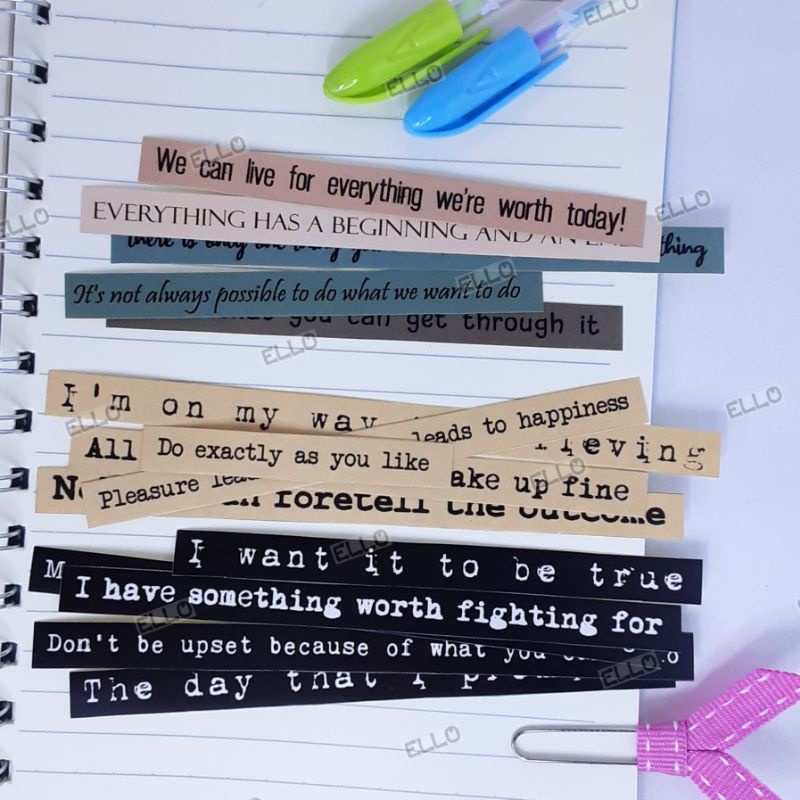 We can live for everything we're worth today!
EVERYTHING HAS A BEGINNING AND AN
there is only
thing
It's not always possible to do what we want to do
you can get through it
I'm on my way
leads to happiness
All
Do exactly as you like
Pleasure
ake up fine
foretell the outcome
I want it to be true
M
I have something worth fighting for
Don't be upset because of what you
The day that I
ELLO
ELLO
ELLO
ELLO
ELLO
ELLO
ELLO
ELLO
ELLO
ELLO
ELLO
ELLO
ELLO
ELLO